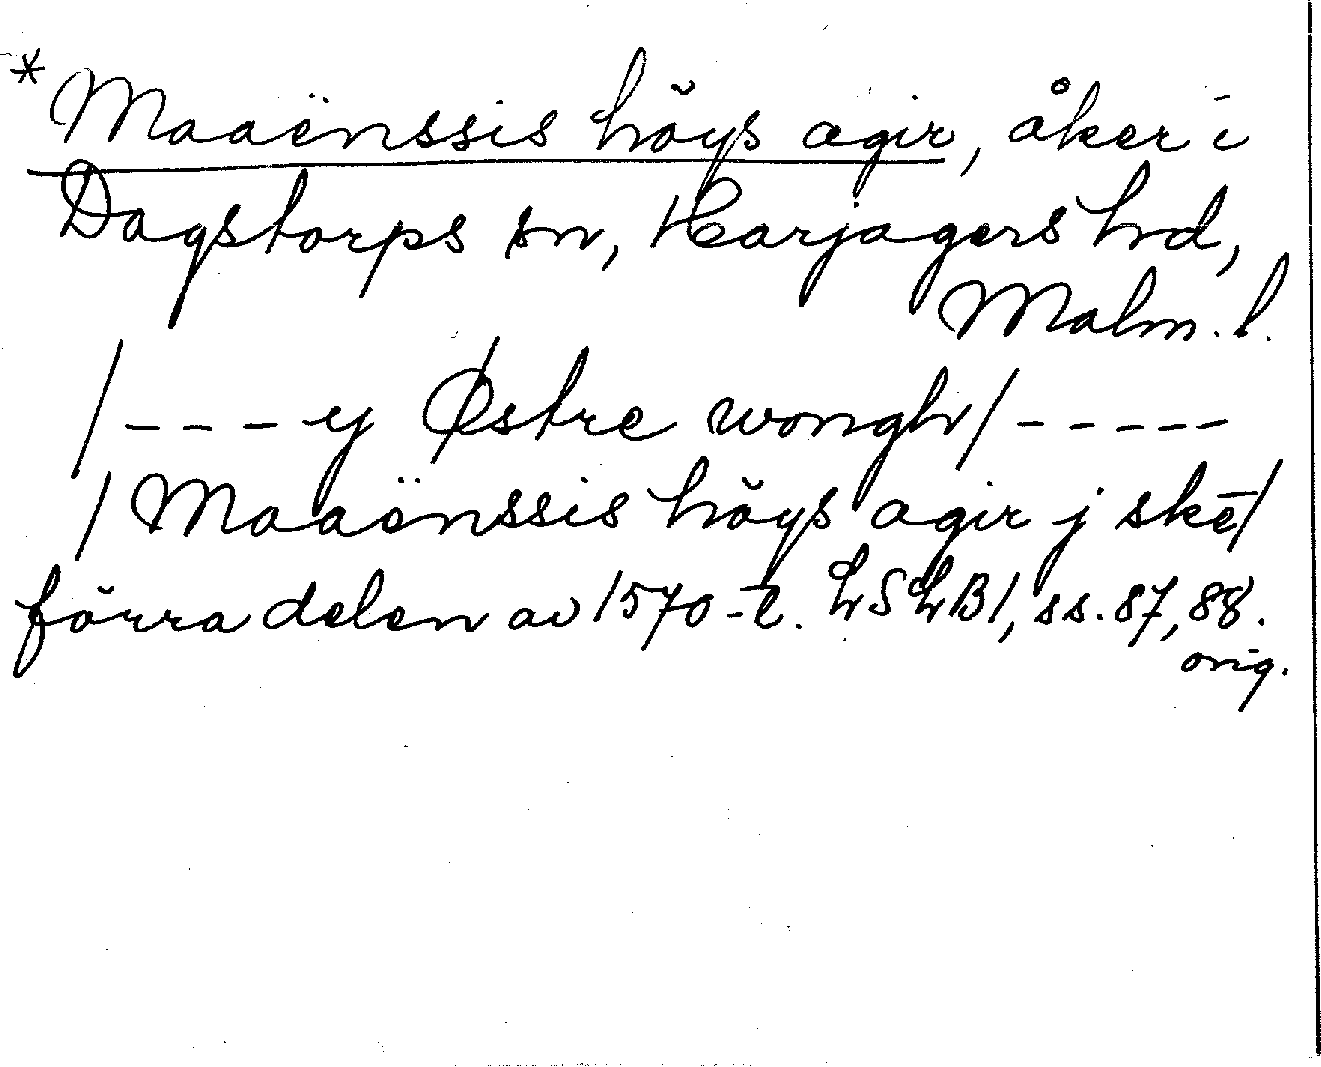 *Maaënssis höys agir, åker i
Dagstorps sn, Harjagers hrd,
Malm. l.
/- - - - y Østre wongh/- - - - -
/Maaënssis höys agir j skē/
förra delen av 1570-t. LSLB1, ss. 87, 88.
orig.